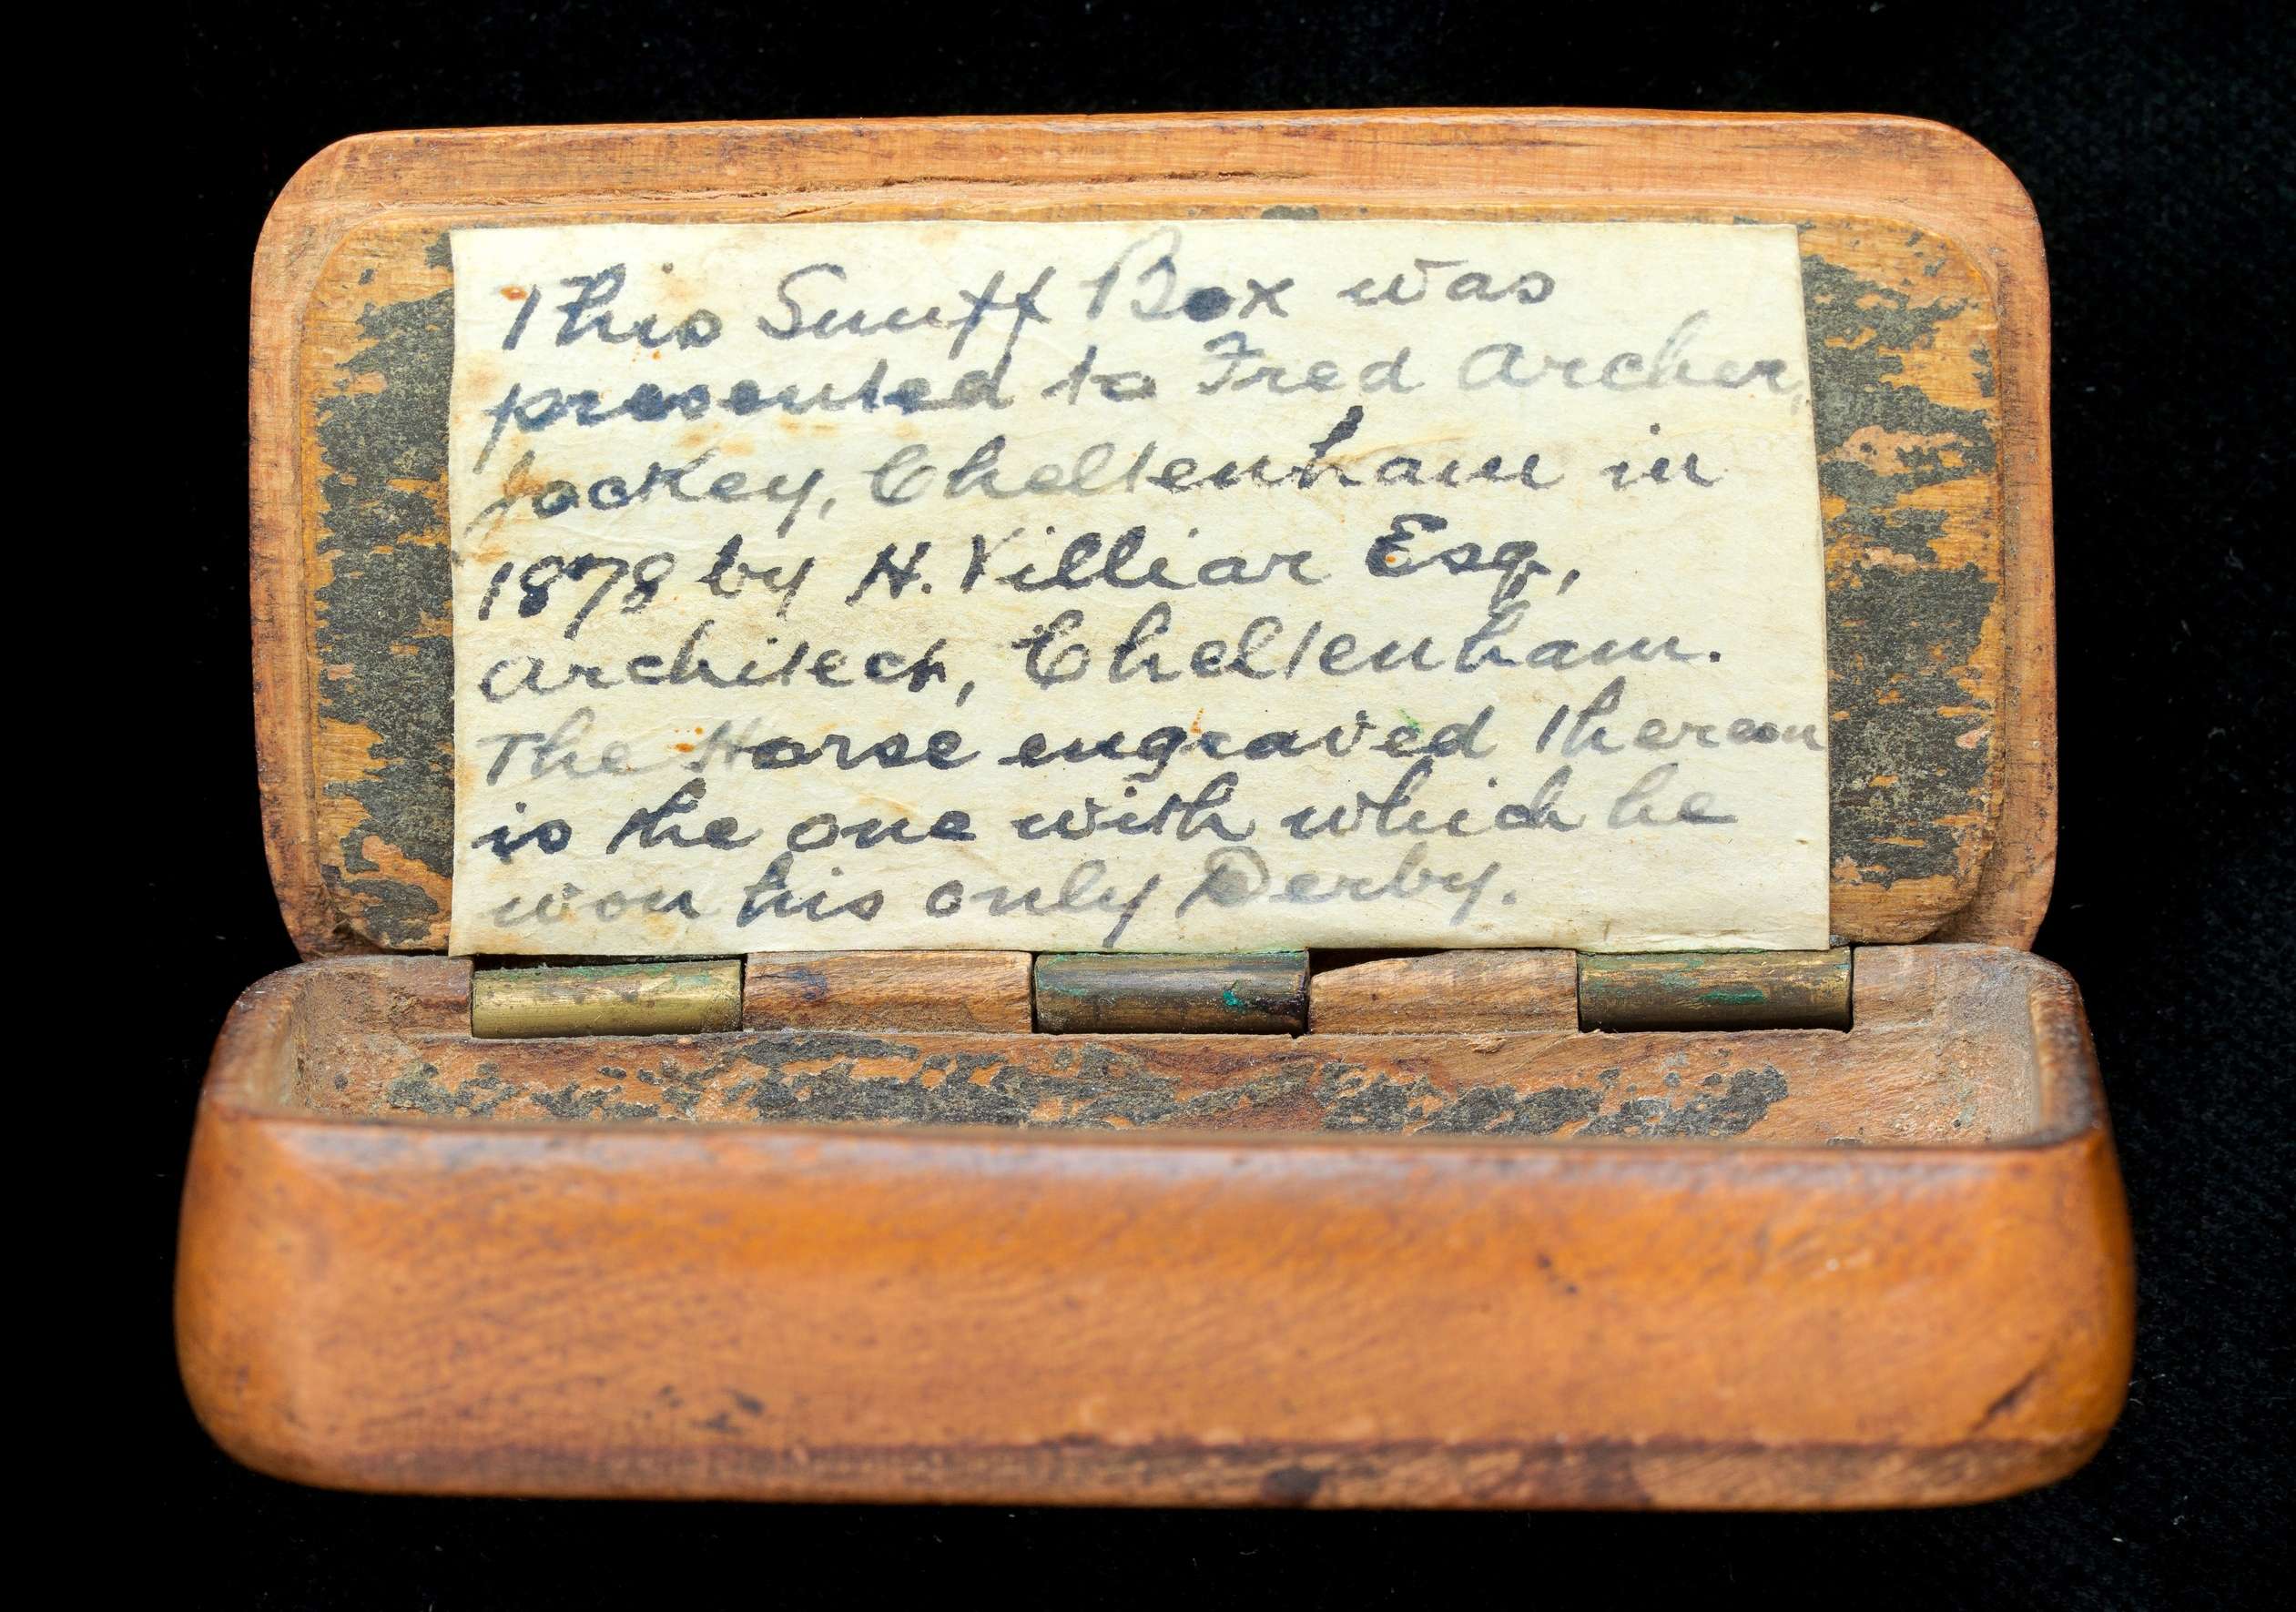 This Snuff Box was
presented to Fred Archer,
Jockey, Cheltenham in
1878 by H. Villiar Esq,
Architect, Cheltenham.
The Horse engraved thereon
is the one with which he
won his only Derby.